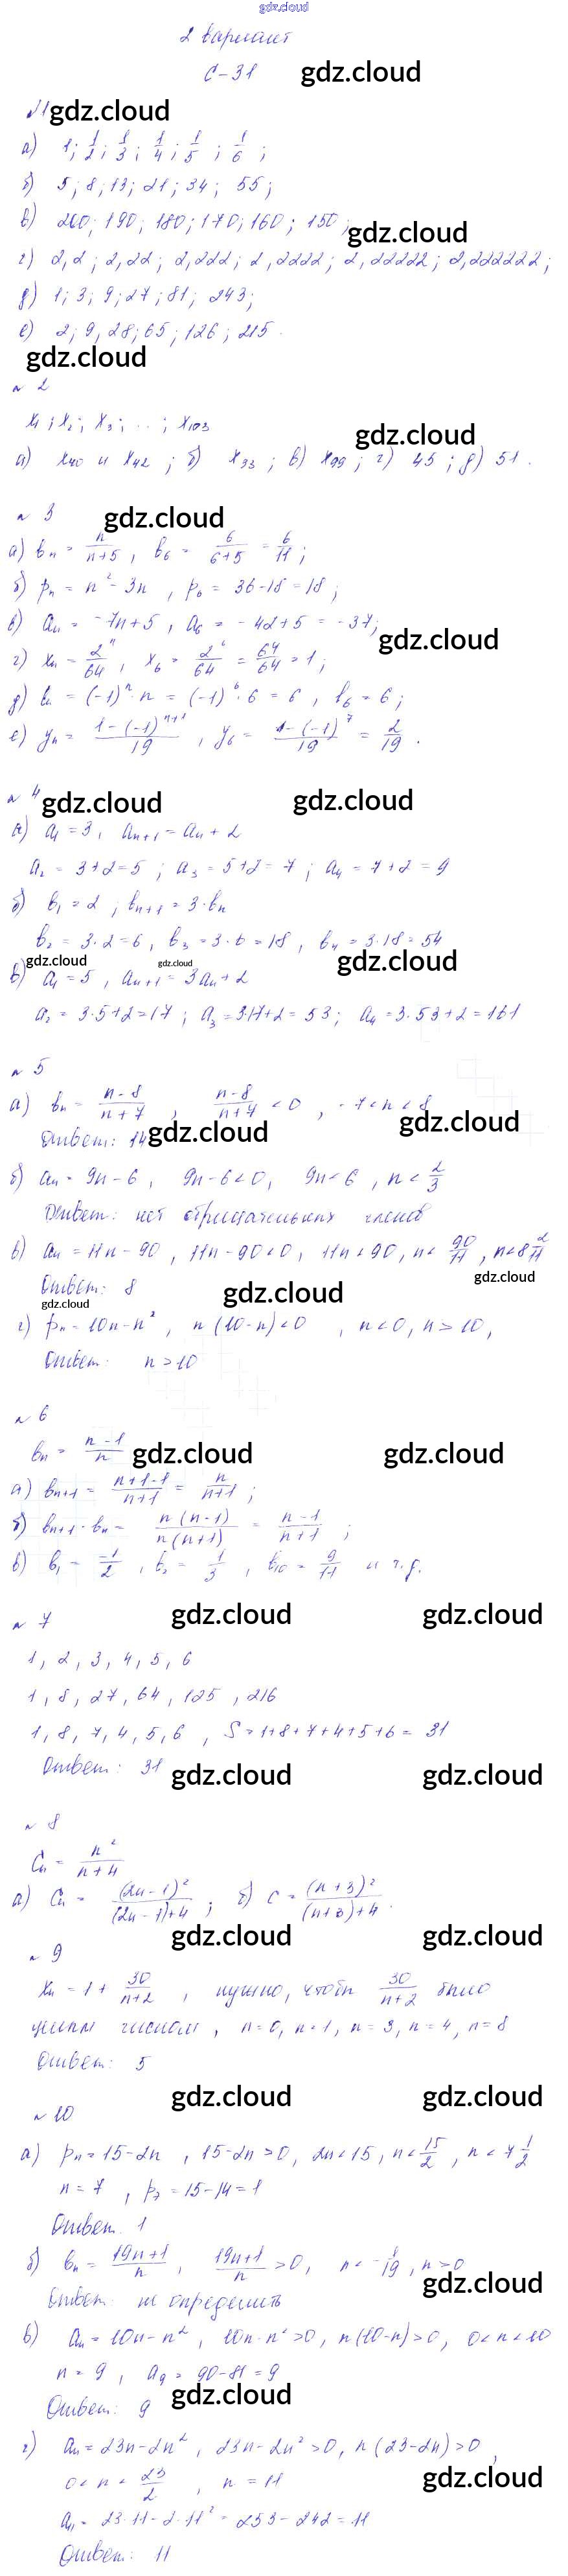 gdz.cloud
2 вариант
С-31 gdz.cloud
№1 gdz.cloud
а) 1; 1/2; 1/3; 1/4; 1/5; 1/6;
б) 5; 8; 13; 21; 34; 55;
в) 200; 190; 180; 170; 160; 150;
gdz.cloud
г) 2,2; 2,22; 2,222; 2,2222; 2,22222; 2,222222;
д) 1; 3; 9; 27; 81; 243;
е) 2; 9, 28; 65; 126; 215.
gdz.cloud
№ 2
x₁; x₂; x₃; ...; x₁₀₃
gdz.cloud
а) x₄₀ и x₄₂; б) x₃₃; в) x₉₉; г) 45; д) 51.
№ 3 gdz.cloud
а) bₙ = n/(n+5), b₆ = 6/(6+5) = 6/11;
б) pₙ = n² - 3n, p₆ = 36-18 = 18;
в) aₙ = -7n+5, a₆ = -42+5 = -37;
gdz.cloud
г) xₙ = 2ⁿ/64, x₆ = 2⁶/64 = 64/64 = 1;
д) bₙ = (-1)ⁿ·n = (-1)⁶·6 = 6, b₆ = 6;
е) yₙ = (1-(-1)ⁿ⁺¹)/19, y₆ = (1-(-1)⁷)/19 = 2/19.
№ 4 gdz.cloud gdz.cloud
а) a₁ = 3, aₙ₊₁ = aₙ + 2
a₂ = 3+2 = 5; a₃ = 5+2 = 7; a₄ = 7+2 = 9
б) b₁ = 2; bₙ₊₁ = 3·bₙ
b₂ = 3·2 = 6, b₃ = 3·6 = 18, b₄ = 3·18 = 54
gdz.cloud gdz.cloud gdz.cloud
в) a₁ = 5, aₙ₊₁ = 3aₙ + 2
a₂ = 3·5+2 = 17; a₃ = 3·17+2 = 53; a₄ = 3·53+2 = 161
№ 5
а) bₙ = (n-8)/(n+7), (n-8)/(n+7) < 0, -7 < n < 8
gdz.cloud
Ответ: 14 gdz.cloud
б) aₙ = 9n-6, 9n-6<0, 9n<6, n < 2/3
Ответ: нет отрицательных членов
в) aₙ = 11n-90, 11n-90<0, 11n<90, n < 90/11, n<8 2/11
gdz.cloud
Ответ: 8 gdz.cloud
gdz.cloud
г) pₙ = 10n-n², n(10-n)<0, n<0, n>10,
Ответ: n>10
№ 6
bₙ = (n-1)/n gdz.cloud gdz.cloud
а) bₙ₊₁ = (n+1-1)/(n+1) = n/(n+1);
б) bₙ₊₁·bₙ = n(n-1)/n(n+1) = (n-1)/(n+1);
в) b₁ = -1/2, b₂ = 1/3, b₁₀ = 9/11 и т.д.
№ 7 gdz.cloud gdz.cloud
1, 2, 3, 4, 5, 6
1, 8, 27, 64, 125, 216
1, 8, 7, 4, 5, 6, S = 1+8+7+4+5+6 = 31
Ответ: 31 gdz.cloud gdz.cloud
№ 8
Cₙ = n²/(n+4)
а) Cₙ = (2n-1)²/((2n-1)+4); б) C = (n+3)²/((n+3)+4).
gdz.cloud gdz.cloud
№ 9
xₙ = 1 + 30/(n+2), нужно, чтобы 30/(n+2) было
целым числом, n=0, n=1, n=3, n=4, n=8
Ответ: 5
gdz.cloud gdz.cloud
№ 10
а) pₙ = 15-2n, 15-2n>0, 2n<15, n < 15/2, n < 7 1/2
n = 7, p₇ = 15-14 = 1
Ответ 1
б) bₙ = (19n+1)/n, (19n+1)/n > 0, n < -1/19, n>0
gdz.cloud
Ответ: не определить
в) aₙ = 10n-n², 10n-n²>0, n(10-n)>0, 0<n<10
n = 9, a₉ = 90-81 = 9
Ответ: 9 gdz.cloud
г) aₙ = 23n-2n², 23n-2n²>0, n(23-2n)>0,
0 < n < 23/2, n = 11
gdz.cloud
a₁₁ = 23·11-2·11² = 253-242 = 11
Ответ: 11